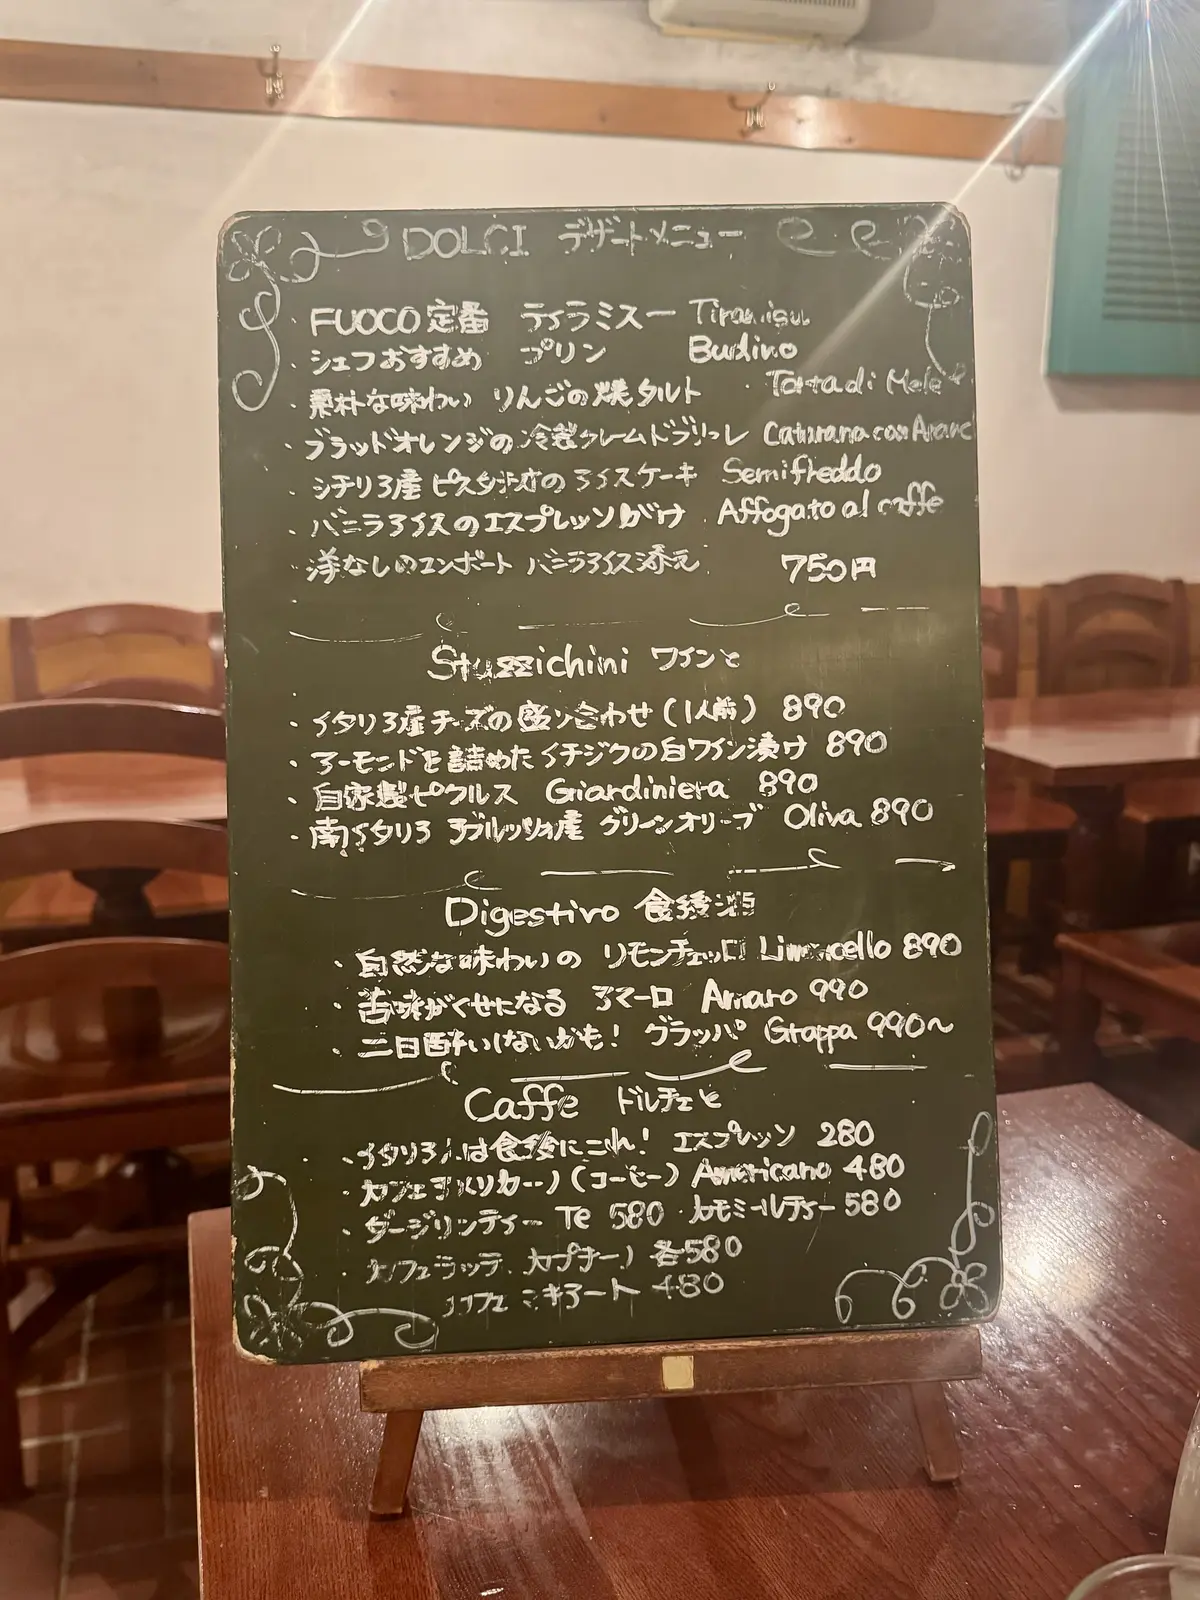 DOLCI デザートメニュー
・FUOCO定番 ティラミスー Tiramisu
・シェフおすすめ プリン Budino
・素朴な味わい りんごの焼タルト Torta di Mele
・ブラッドオレンジの冷製クレームドブリュレ Catarana con Aranc
・シチリア産ピスタチオのアイスケーキ Semifreddo
・バニラアイスのエスプレッソがけ Affogato al caffe
・洋なしのコンポート バニラアイス添え 750円
Stuzzichini ワインと
・イタリア産チーズの盛り合わせ(1人前) 890
・アーモンドを詰めたイチジクの白ワイン漬け 890
・自家製ピクルス Giardiniera 890
・南イタリア アブルッツォ産 グリーンオリーブ Oliva 890
Digestivo 食後酒
・自然な味わいの リモンチェッロ Limoncello 890
・苦味がくせになる アマーロ Amaro 990
・二日酔いしないかも! グラッパ Grappa 990〜
Caffe ドルチェと
・イタリア人は食後にこれ! エスプレッソ 280
・カフェアメリカーノ(コーヒー) Americano 480
・ダージリンティー Te 580 ・カモミールティー 580
・カフェラッテ、カプチーノ 各580
カフェマキアート 480